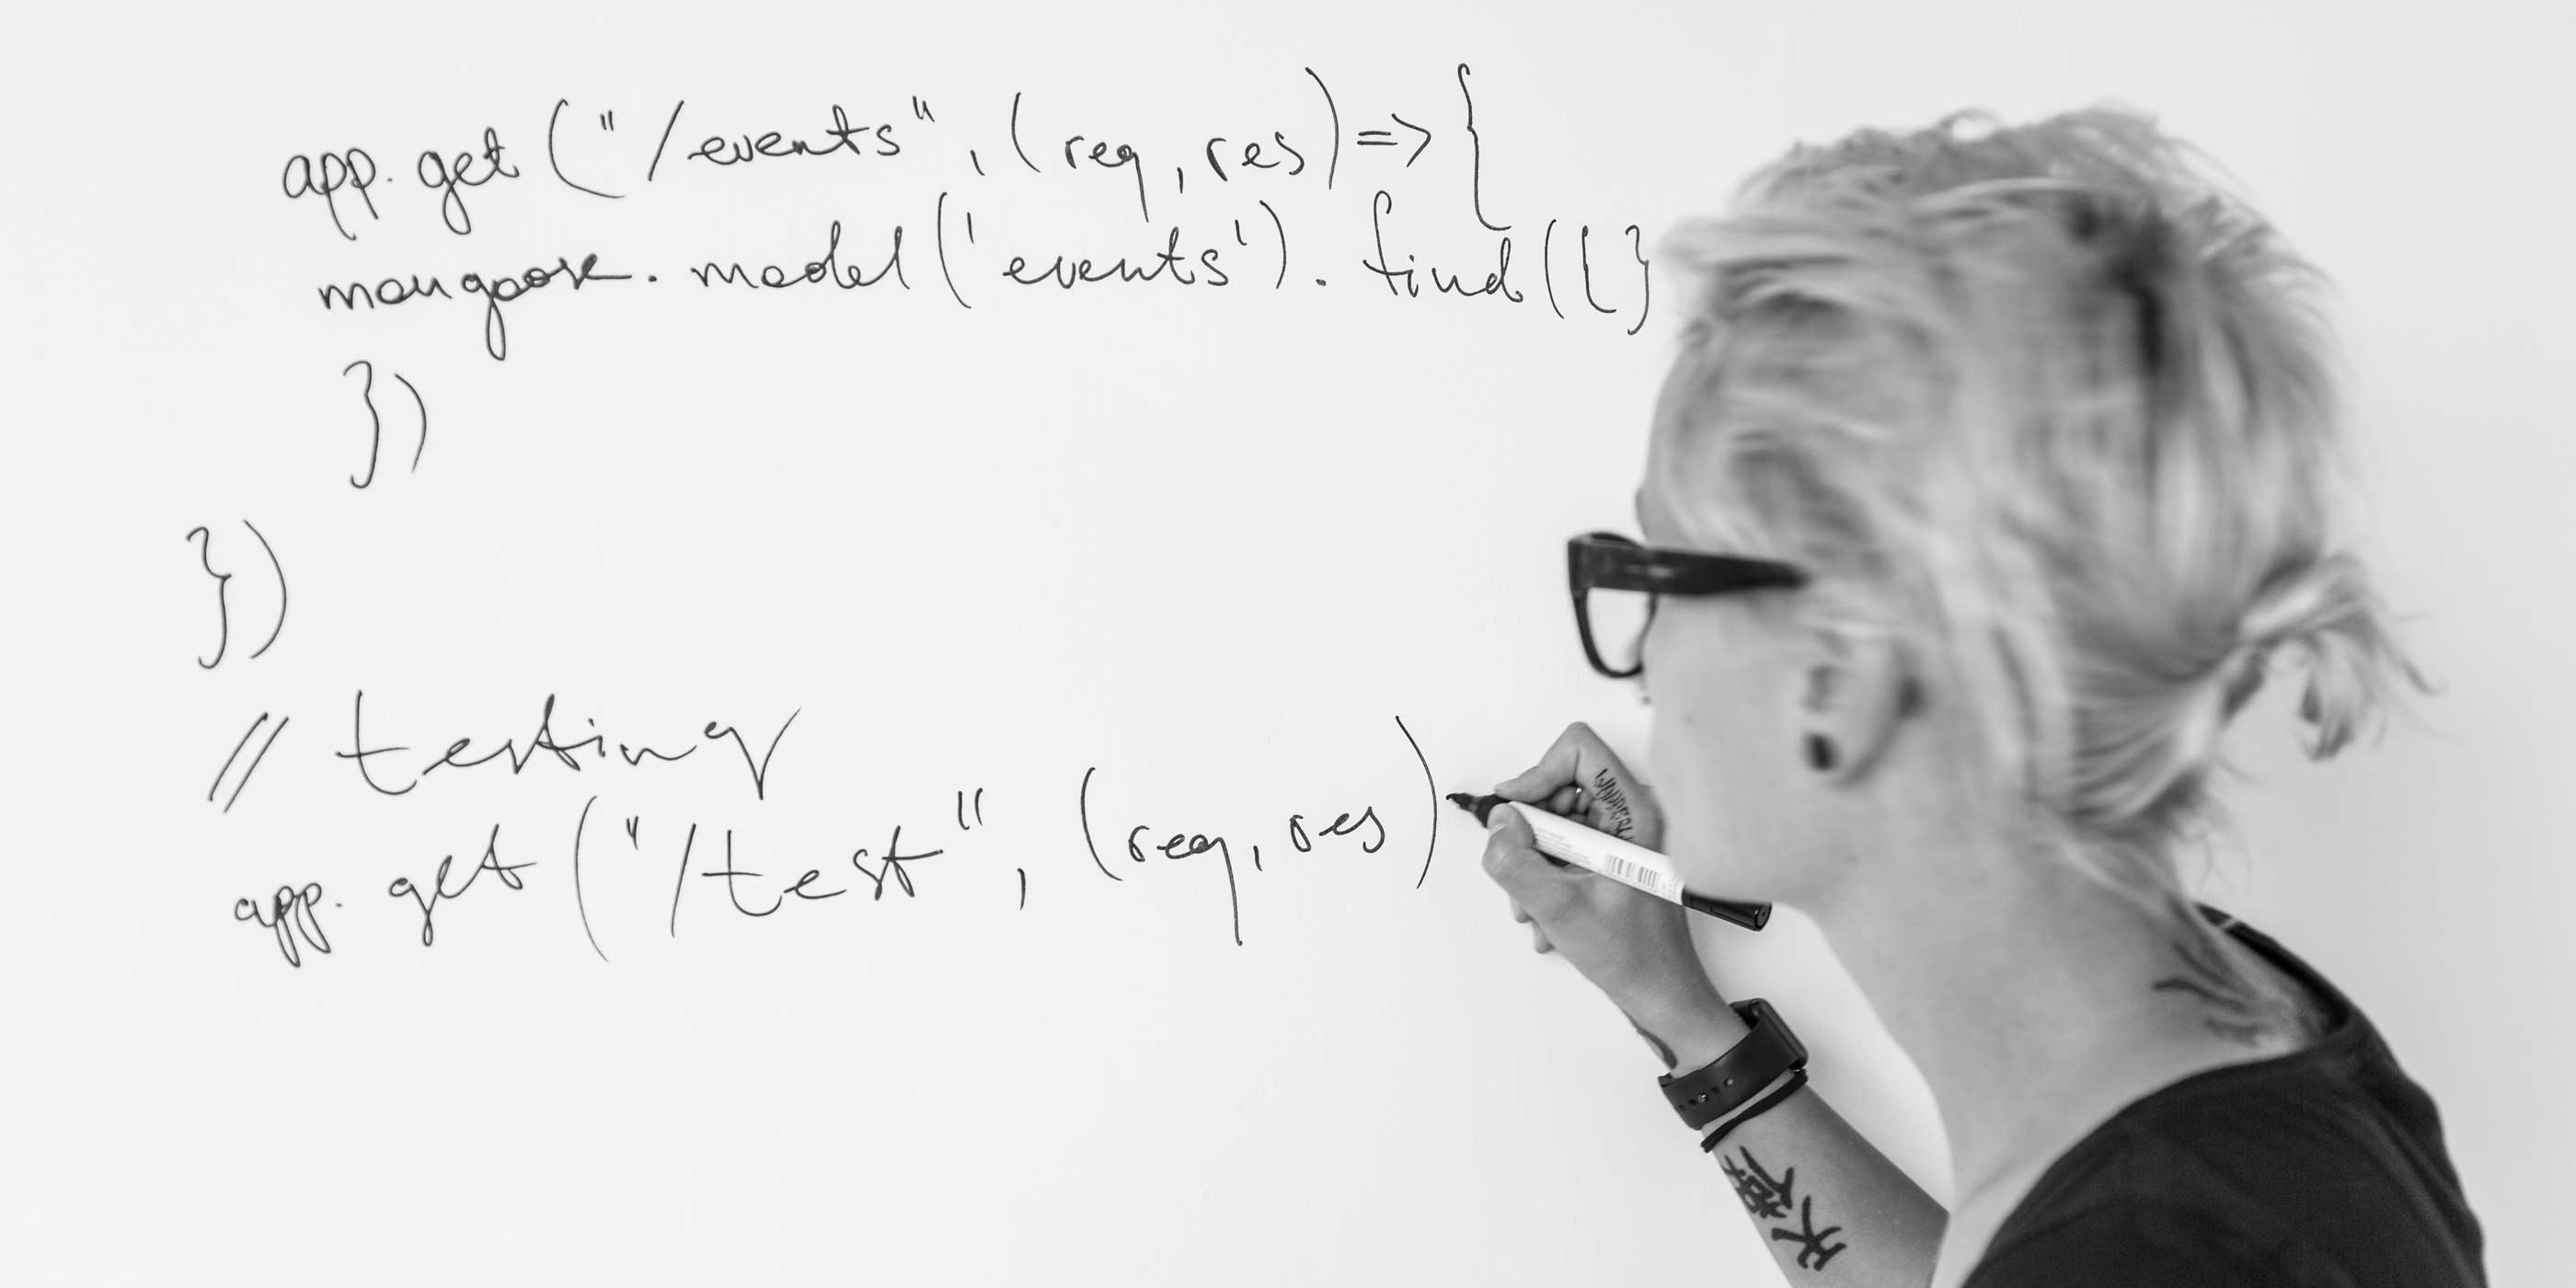 app.get("/events", (req, res) => {
mongoose.model('events').find({}
})
})
// testing
app.get("/test", (req, res)